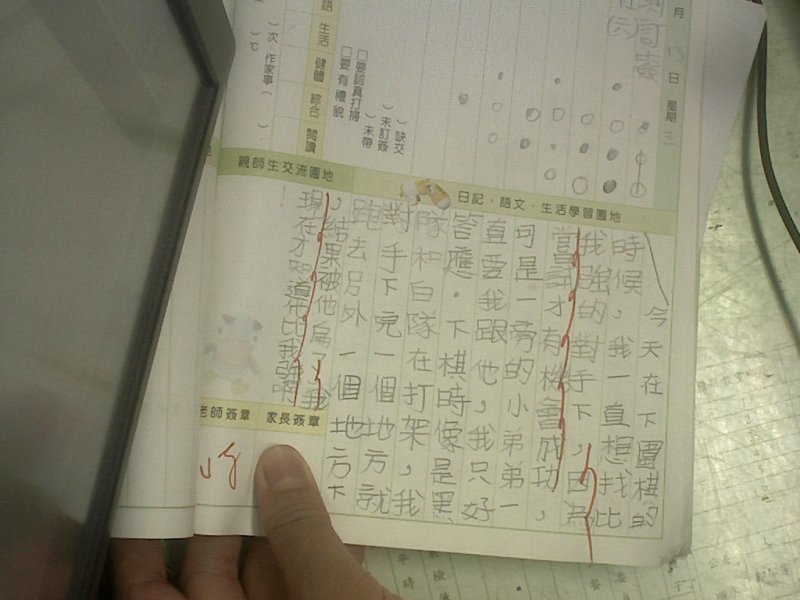 月 13 日 星期三
日記、語文、生活學習園地
今天在下圍棋的
時候，我一直想找比
我強的對手下，因為
嘗試才有機會成功，
可是一旁的小弟弟一
直要我跟他，我只好
答應．下棋時像是黑
隊和白隊在打架，我
打對手下完一個地方就
跑去另外一個地方下
，結果被他扁了，我
現在才知道他比我強啊
！
親師生交流園地
語 生活 健體 綜合 閱讀
）缺交
）未訂簽
）未帶
□要認真打掃
□要有禮貌
）次．作家事（
家長簽章
老師簽章